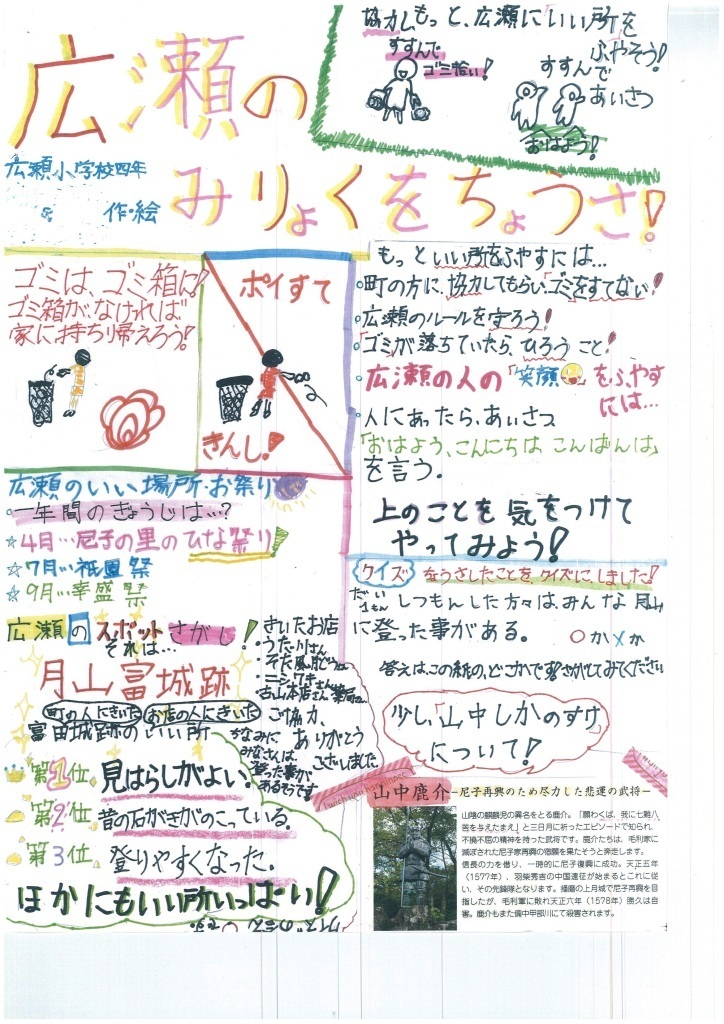 広瀬の
みりょくをちょうさ!
広瀬小学校四年
& 作・絵
協力しもっと、広瀬に「いい所」を
ふやそう!
すすんで
ゴミ拾い!
すすんで
あいさつ
おはよう!
ゴミは、ゴミ箱に!
ゴミ箱が、なければ
家に持ち帰えろう!
ポイすて
きんし!
もっといい所をふやすには…
・町の方に、協力してもらい「ゴミをすてない!
・広瀬のルールを守ろう!
・「ゴミが落ちていたら、ひろうこと!
・広瀬の人の「笑顔」をふやす
には…
・人にあったら、あいさつ
「おはよう、こんにちは こんばんは」
を言う。
上のことを気をつけて
やってみよう!
広瀬のいい場所・お祭り
・一年間のぎょうじは…?
☆4月…尼子の里のひな祭り!
☆7月…祇園祭
☆9月…幸盛祭
広瀬のスポットさがし!
それは…
月山富城跡
町の人にきいた お店の人にきいた
富田城跡のいい所
第1位 見はらしがよい。
第2位 昔の石がきがのこっている。
第3位 登りやすくなった
ほかにもいい所いっぱい!
きいたお店
・うた川さん
・古山本店さん
ご協力、
ありがとう
ございました
ちなみに
みなさんは、
登った事が
あるそうです
クイズ
ちょうさしたことを、クイズにしました!
だい1もん
しつもんした方々は、みんな月山
に登った事がある。
○か×か
答えは、この紙の、どこかで
さがしてみてください
少し「山中しかのすけ」
について!
山中鹿介 ―尼子再興のため尽力した悲運の武将―
山陰の麒麟児の異名をとる鹿介。「願わくば、我に七難八
苦を与えたまえ」と三日月に祈ったエピソードで知られ、
不撓不屈の精神を持った武将です。鹿介たちは、毛利家に
滅ぼされた尼子家再興の宿願を果たそうと奔走します。
信長の力を借り、一時的に尼子復興に成功。天正五年
（1577年）、羽柴秀吉の中国遠征が始まるとこれに従
い、その先鋒隊となります。播磨の上月城で尼子再興を目
指したが、毛利軍に敗れ天正六年（1578年）勝久は自
害。鹿介もまた備中甲部川にて殺害されます。